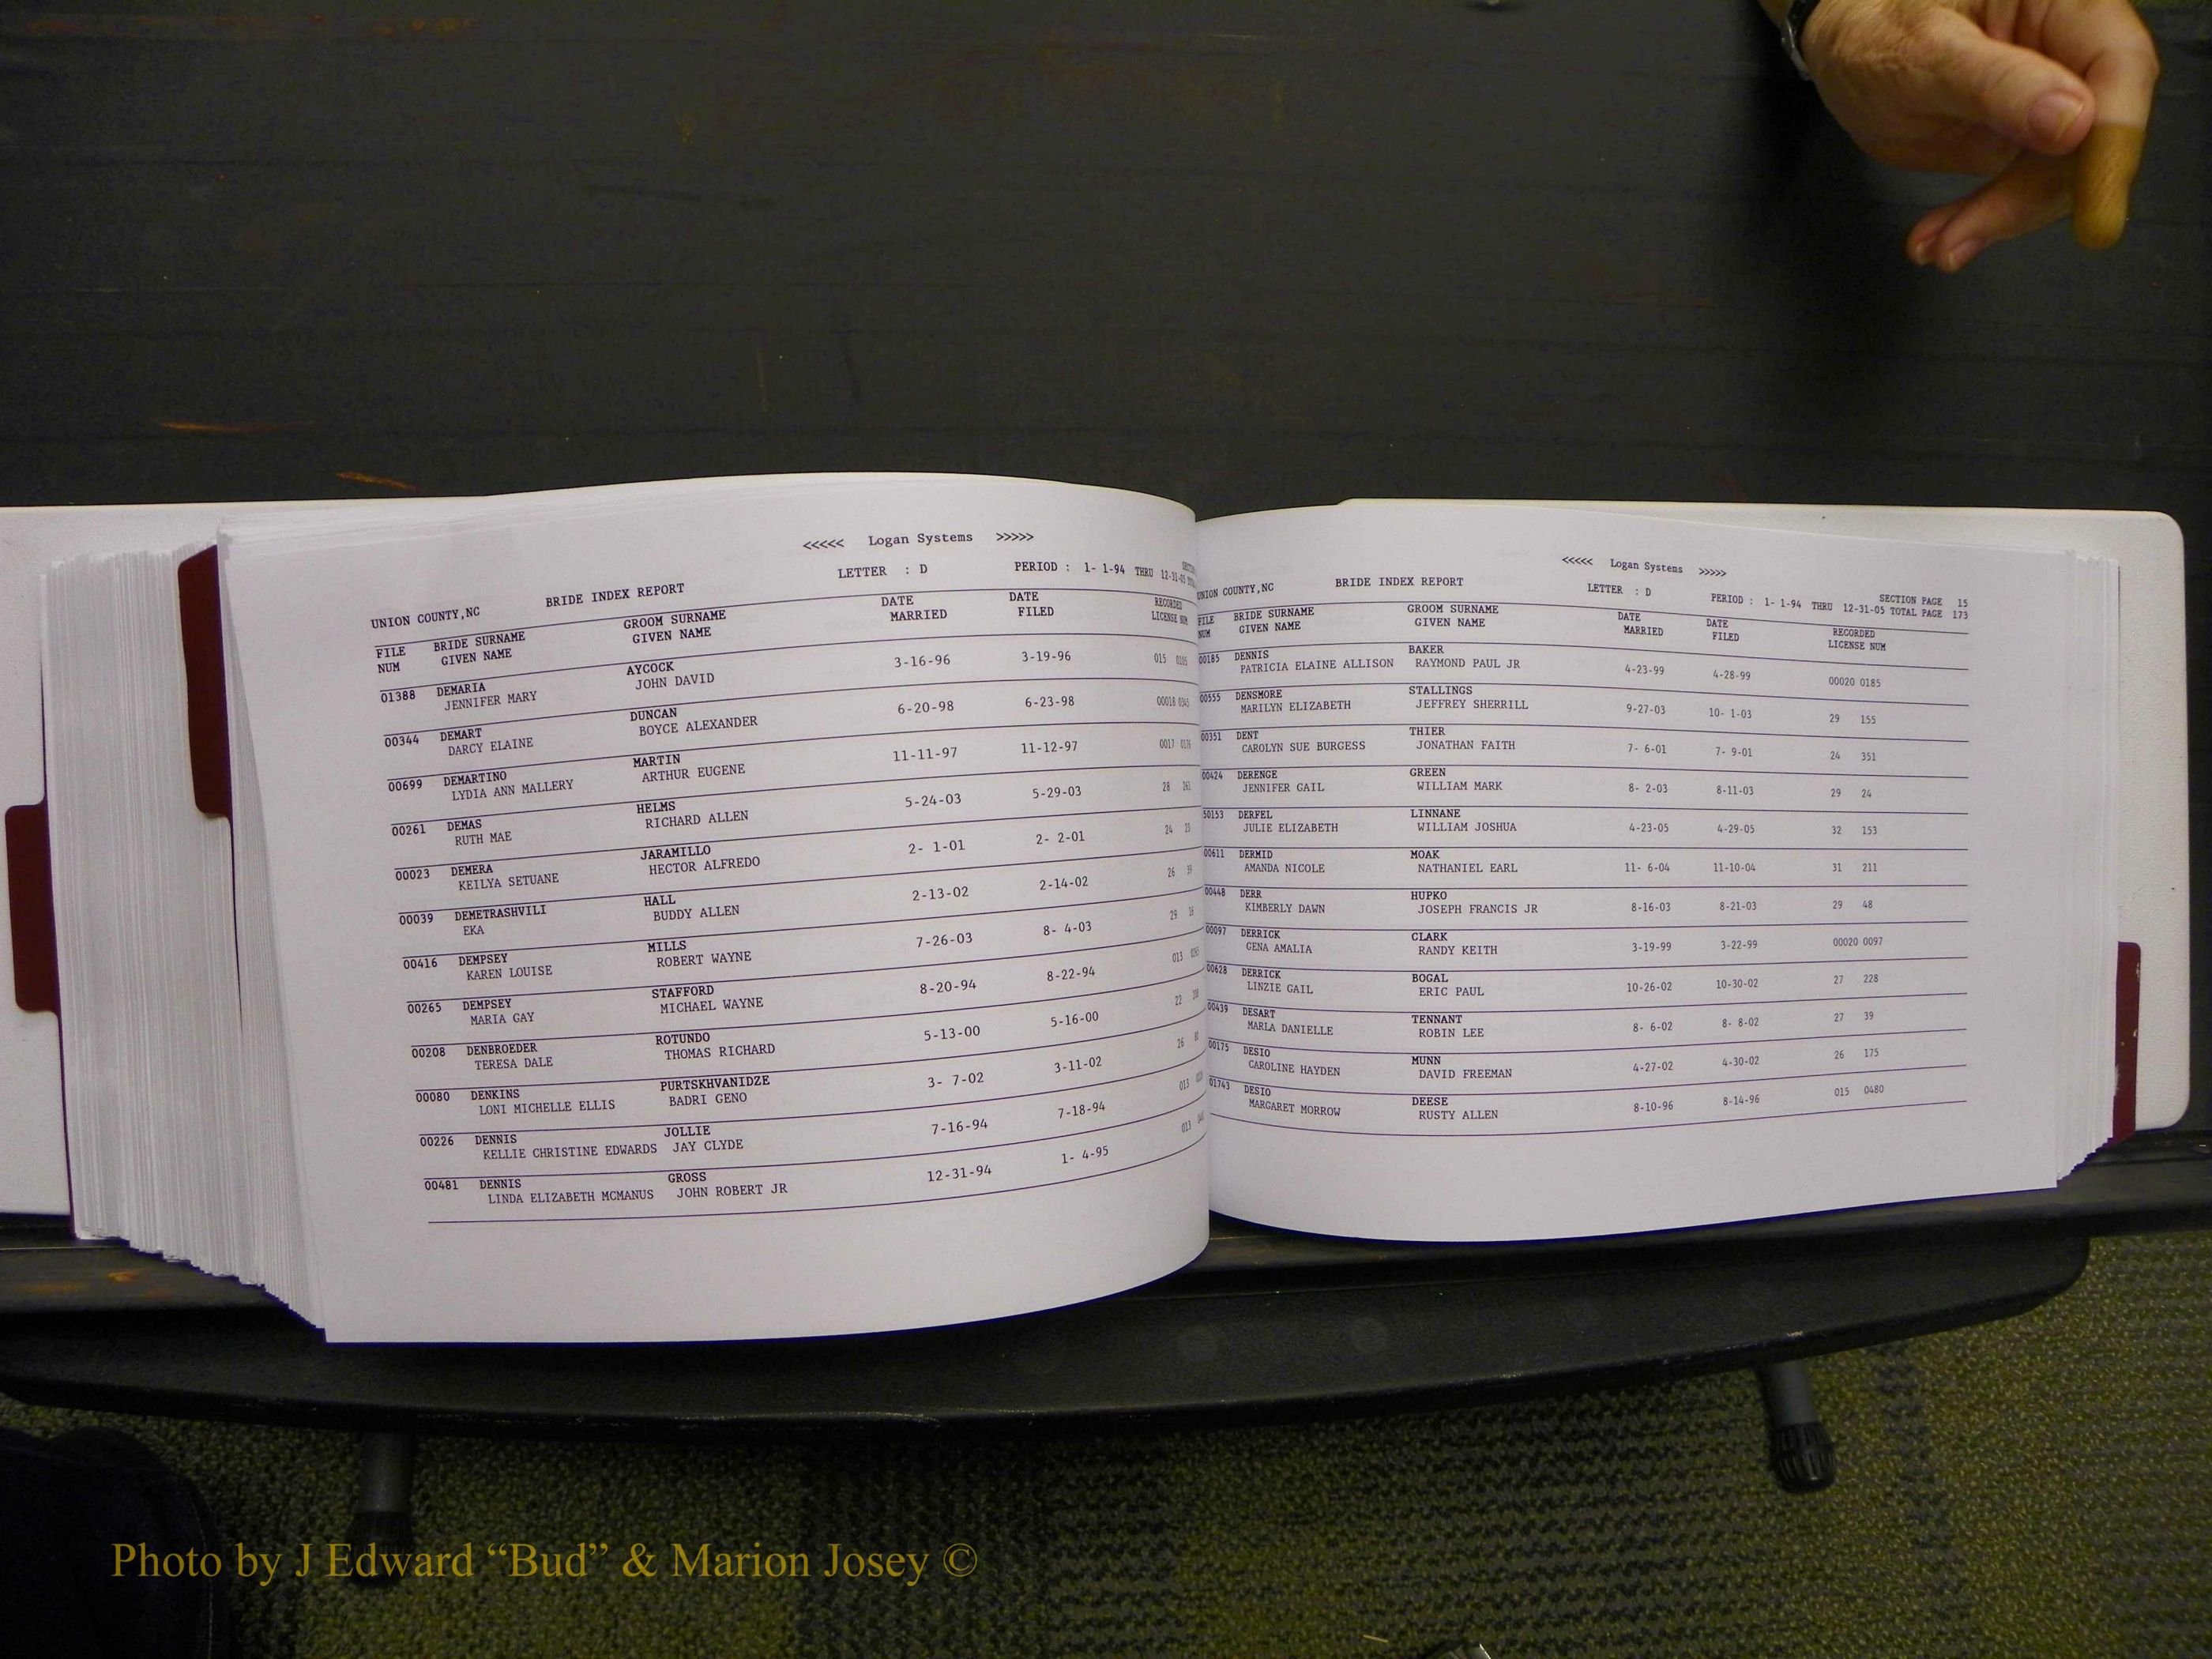 <<<<< Logan Systems >>>>>
UNION COUNTY,NC BRIDE INDEX REPORT LETTER : D PERIOD : 1- 1-94 THRU 12-31-05
FILE BRIDE SURNAME GROOM SURNAME DATE DATE RECORDED
NUM GIVEN NAME GIVEN NAME MARRIED FILED LICENSE NUM
01388 DEMARIA AYCOCK 3-16-96 3-19-96 015
JENNIFER MARY JOHN DAVID
00344 DEMART DUNCAN 6-20-98 6-23-98 00018
DARCY ELAINE BOYCE ALEXANDER
00699 DEMARTINO MARTIN 11-11-97 11-12-97 0017
LYDIA ANN MALLERY ARTHUR EUGENE
00261 DEMAS HELMS 5-24-03 5-29-03 28 261
RUTH MAE RICHARD ALLEN
00023 DEMERA JARAMILLO 2- 1-01 2- 2-01 24 23
KEILYA SETUANE HECTOR ALFREDO
00039 DEMETRASHVILI HALL 2-13-02 2-14-02 26 39
EKA BUDDY ALLEN
00416 DEMPSEY MILLS 7-26-03 8- 4-03 29 16
KAREN LOUISE ROBERT WAYNE
00265 DEMPSEY STAFFORD 8-20-94 8-22-94 013 0265
MARIA GAY MICHAEL WAYNE
00208 DENBROEDER ROTUNDO 5-13-00 5-16-00 22 208
TERESA DALE THOMAS RICHARD
00080 DENKINS PURTSKHVANIDZE 3- 7-02 3-11-02 26 80
LONI MICHELLE ELLIS BADRI GENO
00226 DENNIS JOLLIE 7-16-94 7-18-94 013
KELLIE CHRISTINE EDWARDS JAY CLYDE
00481 DENNIS GROSS 12-31-94 1- 4-95 013
LINDA ELIZABETH MCMANUS JOHN ROBERT JR
<<<<< Logan Systems >>>>>
UNION COUNTY,NC BRIDE INDEX REPORT LETTER : D SECTION PAGE 15
PERIOD : 1- 1-94 THRU 12-31-05 TOTAL PAGE 173
FILE BRIDE SURNAME GROOM SURNAME DATE DATE RECORDED
NUM GIVEN NAME GIVEN NAME MARRIED FILED LICENSE NUM
00185 DENNIS BAKER 4-23-99 4-28-99 00020 0185
PATRICIA ELAINE ALLISON RAYMOND PAUL JR
00555 DENSMORE STALLINGS 9-27-03 10- 1-03 29 155
MARILYN ELIZABETH JEFFREY SHERRILL
00351 DENT THIER 7- 6-01 7- 9-01 24 351
CAROLYN SUE BURGESS JONATHAN FAITH
00424 DERENGE GREEN 8- 2-03 8-11-03 29 24
JENNIFER GAIL WILLIAM MARK
50153 DERFEL LINNANE 4-23-05 4-29-05 32 153
JULIE ELIZABETH WILLIAM JOSHUA
00611 DERMID MOAK 11- 6-04 11-10-04 31 211
AMANDA NICOLE NATHANIEL EARL
00448 DERR HUPKO 8-16-03 8-21-03 29 48
KIMBERLY DAWN JOSEPH FRANCIS JR
00097 DERRICK CLARK 3-19-99 3-22-99 00020 0097
GENA AMALIA RANDY KEITH
00628 DERRICK BOGAL 10-26-02 10-30-02 27 228
LINZIE GAIL ERIC PAUL
00439 DESART TENNANT 8- 6-02 8- 8-02 27 39
MARLA DANIELLE ROBIN LEE
00175 DESIO MUNN 4-27-02 4-30-02 26 175
CAROLINE HAYDEN DAVID FREEMAN
01743 DESIO DEESE 8-10-96 8-14-96 015 0480
MARGARET MORROW RUSTY ALLEN
Photo by J Edward “Bud” & Marion Josey ©